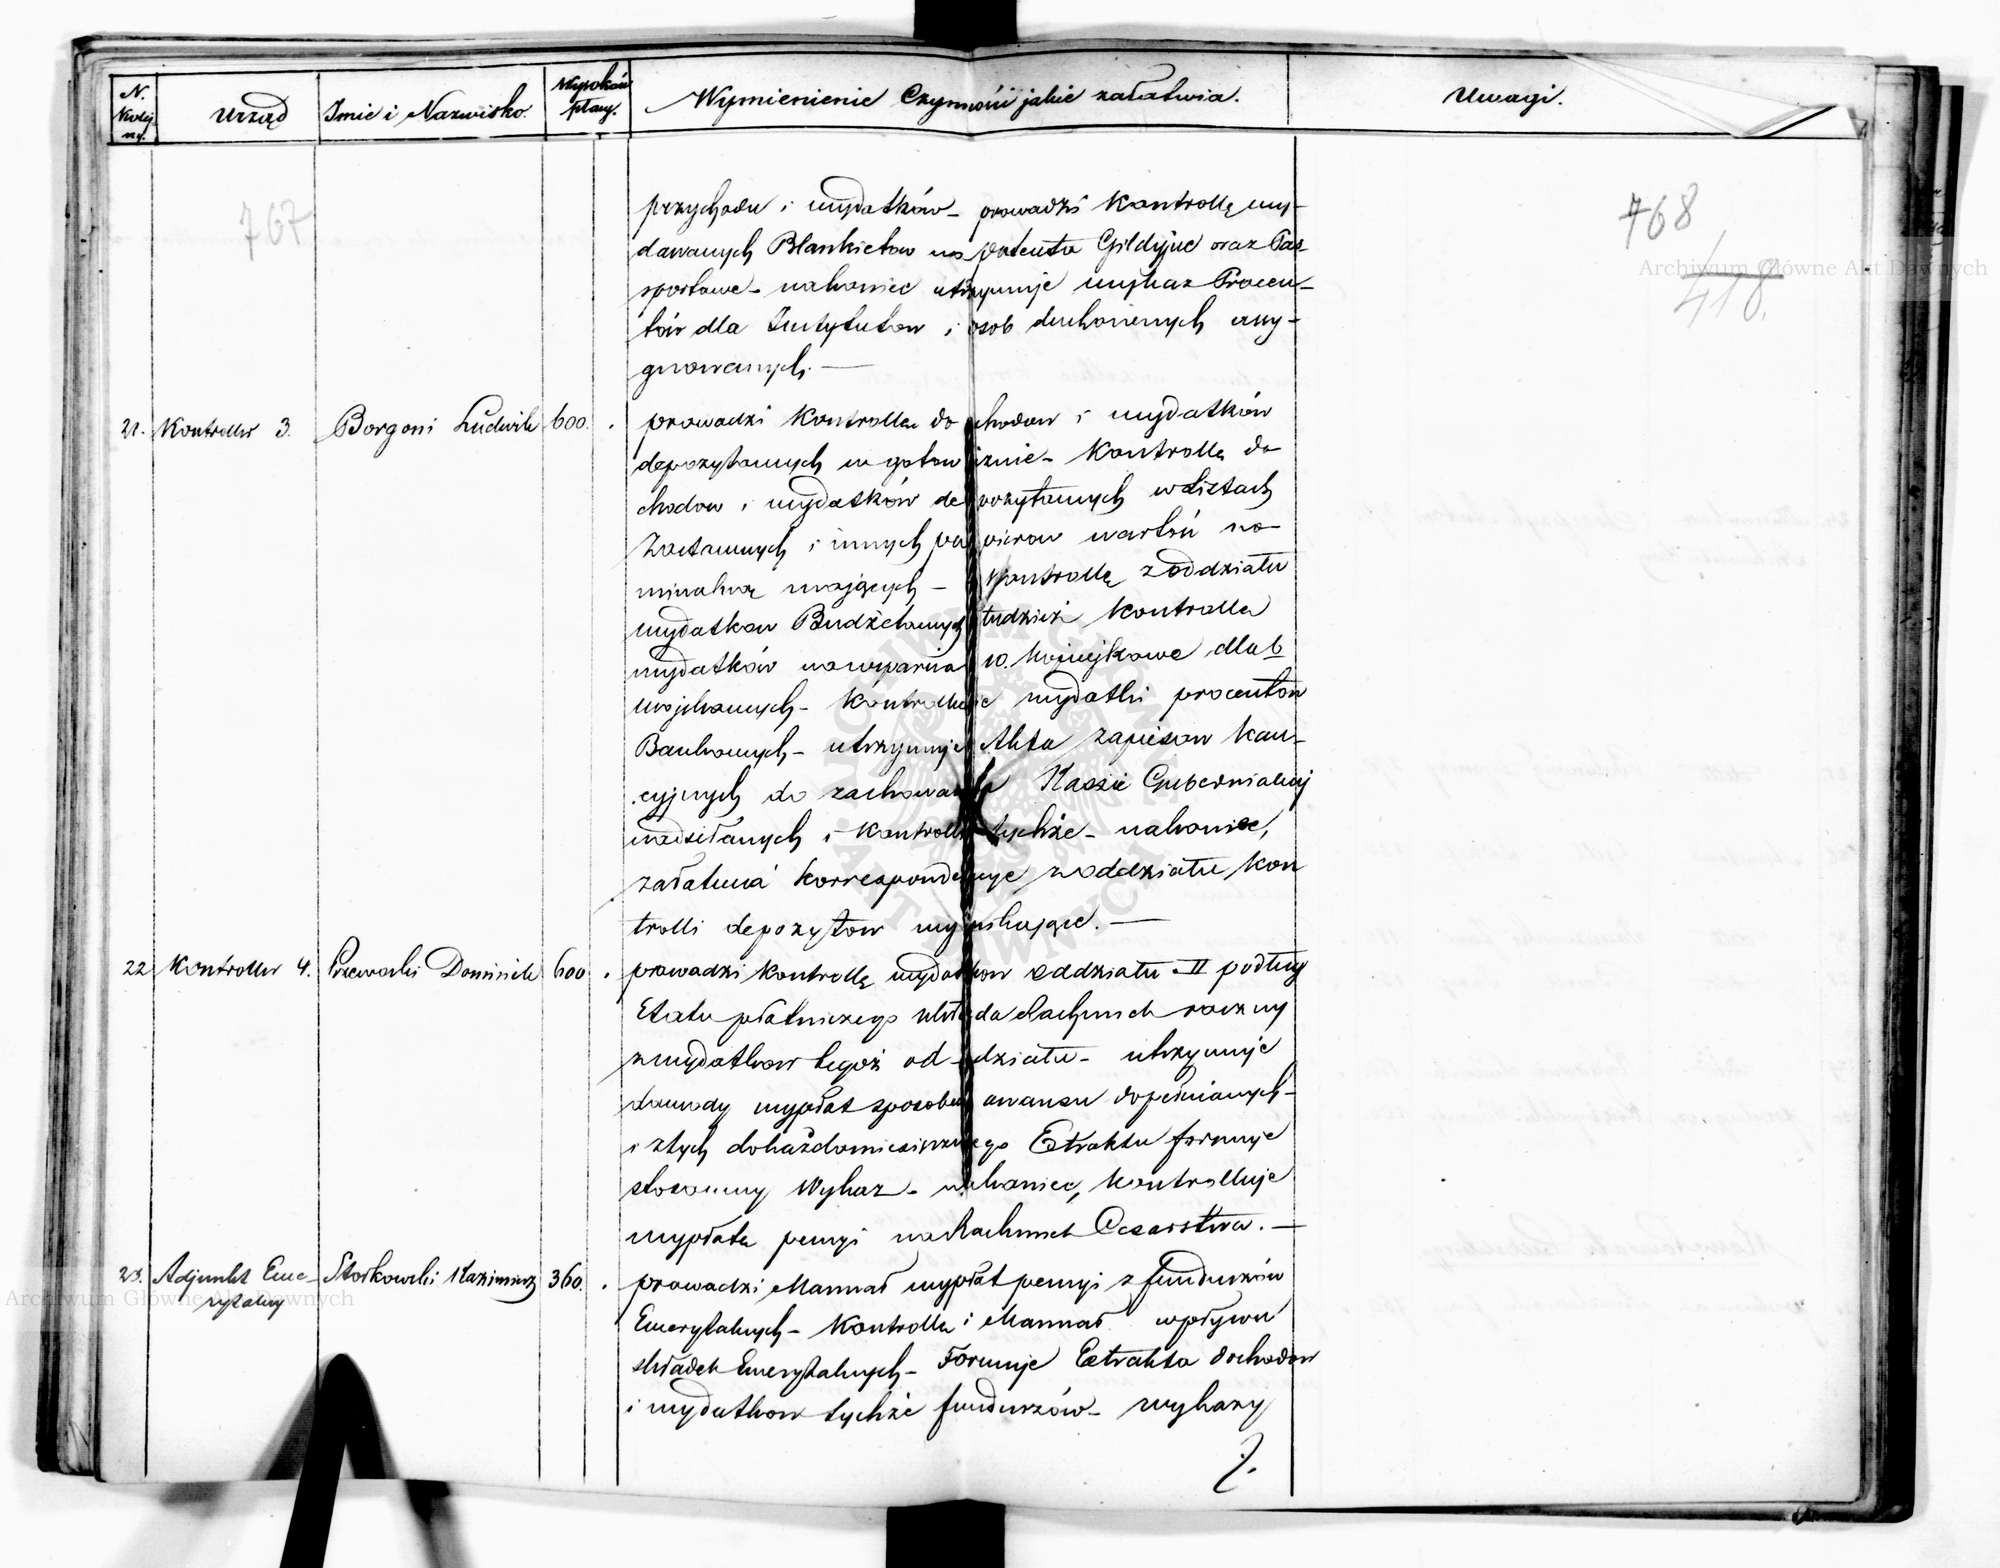 N. Kolej ny.
Urząd
Imie i Nazwisko.
Wysokość płacy.
Wymienienie Czynności jakie załatwia.
Uwagi.
767
768
418.
przychodu i wydatków - prowadzi Kontrollę wy-
dawanych Blankietow na patenta Gildyjne oraz Pas-
sportowe - nakoniec utrzymuje wykaz Procen-
tów dla Instytutow i osob duchownych assy-
gnowanych. —
21. Kontroller 3. Borgoni Ludwik 600. prowadzi Kontrolle do chodow i wydatków
depozytowych w gotowiznie - Kontrolle do
chodow i wydatków depozytowych w Listach
Zastawnych i innych papierow wartość no-
minalną mających - Kontrollę z oddziału
wydatkow Budżetowych tudzież Kontrolla
wydatków na wsparcia 10. kopiejkowe dla b.
wojskowych - Kontrolluje wydatki procentow
Bankowych - utrzymuje Akta zapisow kau-
cyjnych do zachowania Kassie Gubernialnej
nadsełanych i Kontrolle tychże - nakoniec,
załatwia korrespondencye z oddziału Kon
trolli depozytow wynikające. —
22 Kontroller 4. Przewoski Dominik 600. prowadzi kontrollę wydatkow oddziału II podług
Etatu płatniczego układa Rachunek roczny
z wydatkow tegoż od-działu - utrzymuje
dowody wypłat sposobem awansu dopełnianych -
i z tych do każdomiesięcznego Extraktu formuje
stosowny Wykaz - nakoniec, kontrolluje
wypłata pensyi na Rachunek Cesarstwa. —
23. Adjunkt Eme-
rytalny
Storkowski Kazimierz 360. prowadzi Manuał wypłat pensyi z funduszów
Emerytalnych - Kontrolla i Manuał wpływu
składek Emerytalnych - Formuje Extrakta dochodow
i wydatkow tychże funduszów - wykazy
Archiwum Główne Akt Dawnych
Archiwum Główne Akt Dawnych